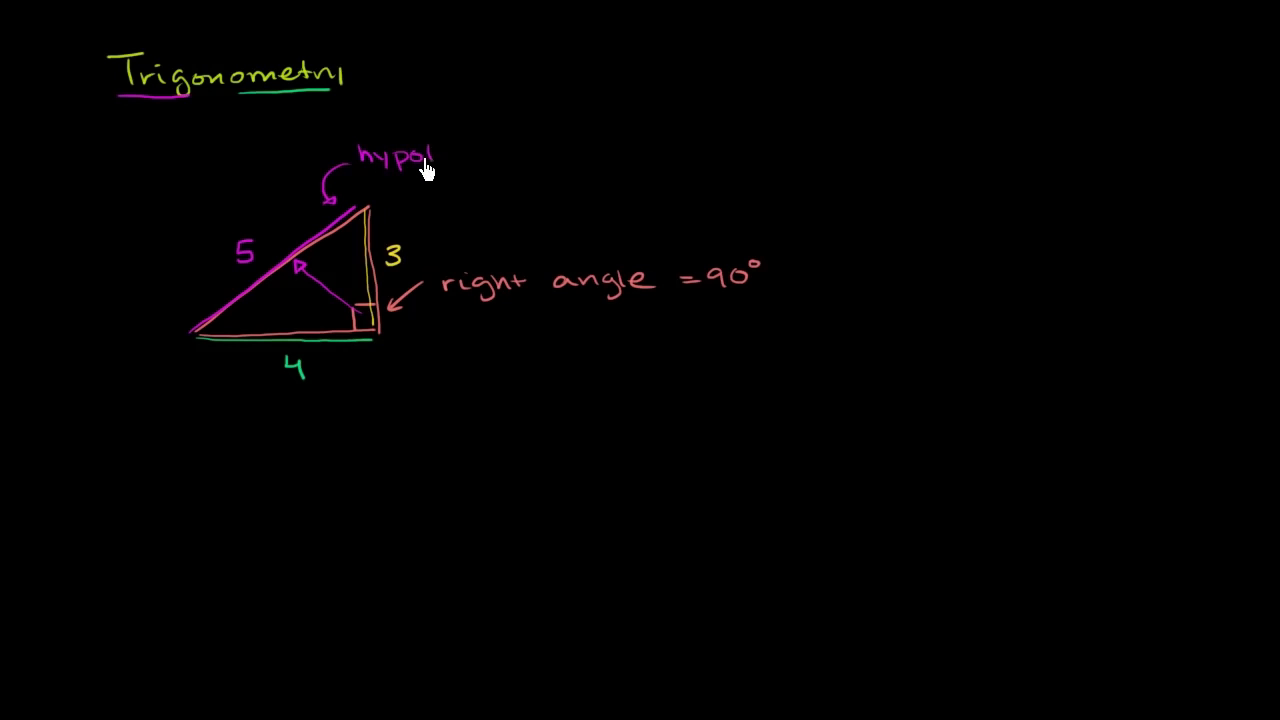 Trigonometry
hypot
5
3
right angle = 90°
4